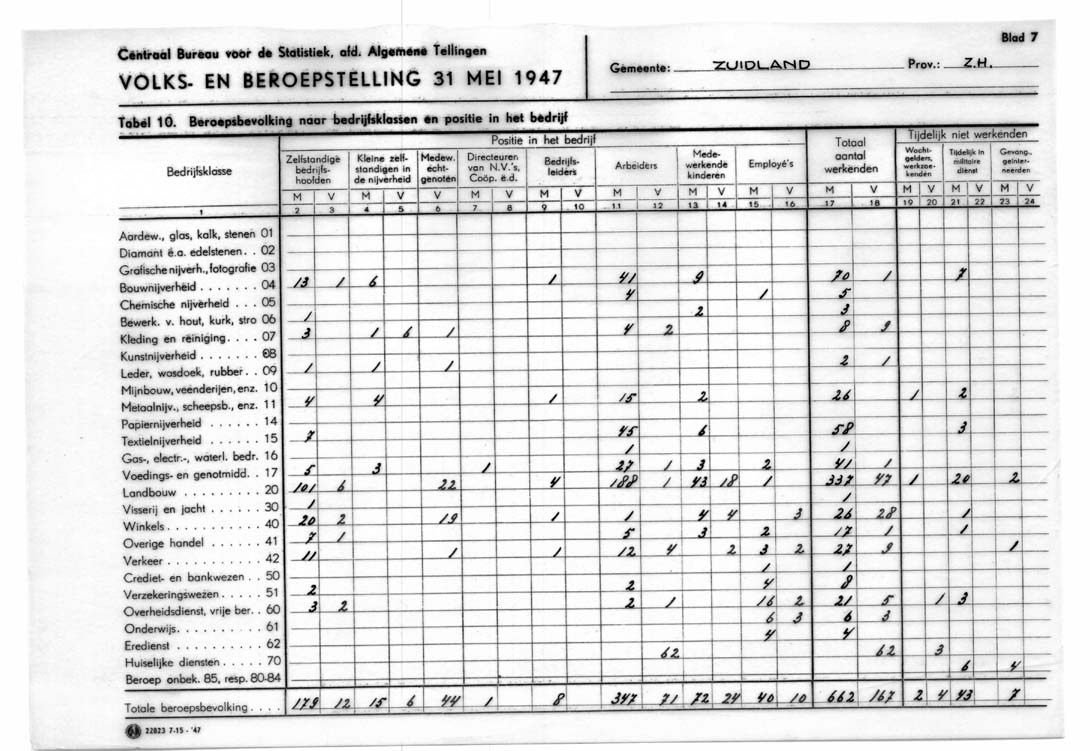 Blad 7
Centraal Bureau voor de Statistiek, afd. Algemene Tellingen
VOLKS- EN BEROEPSTELLING 31 MEI 1947
Gemeente: ZUIDLAND Prov.: Z.H.
Tabel 10. Beroepsbevolking naar bedrijfsklassen en positie in het bedrijf
Bedrijfsklasse Positie in het bedrijf Totaal aantal werkenden Tijdelijk niet werkenden
Zelfstandige bedrijfshoofden Kleine zelfstandigen in de nijverheid Medew. echtgenoten Directeuren van N.V.'s, Coöp. e.d. Bedrijfsleiders Arbeiders Medewerkende kinderen Employé's Wachtgelders, werkzoekenden Tijdelijk in militaire dienst Gevang., geïnterneerden
M V M V V M V M V M V M V M V M V M V M V M V
1 2 3 4 5 6 7 8 9 10 11 12 13 14 15 16 17 18 19 20 21 22 23 24
Aardew., glas, kalk, stenen 01
Diamant e.a. edelstenen . . 02
Grafische nijverh., fotografie 03
Bouwnijverheid . . . . . . . 04 13 1 6 1 41 9 70 1 7
Chemische nijverheid . . . 05 4 1 5
Bewerk. v. hout, kurk, stro 06 1 2 3
Kleding en reiniging . . . . 07 3 1 6 1 4 2 8 9
Kunstnijverheid . . . . . . . 08
Leder, wasdoek, rubber . . 09 1 1 1 2 1
Mijnbouw, veenderijen, enz. 10
Metaalnijv., scheepsb., enz. 11 4 4 1 15 2 26 1 2
Papiernijverheid . . . . . . 14
Textielnijverheid . . . . . . 15 7 45 6 58 3
Gas-, electr.-, waterl. bedr. 16 1 1
Voedings- en genotmidd. . 17 5 3 1 27 1 3 2 41 1
Landbouw . . . . . . . . . 20 101 6 22 4 188 1 43 18 1 337 47 1 20 2
Visserij en jacht . . . . . . 30 1 1
Winkels . . . . . . . . . . . 40 20 2 19 1 1 4 4 3 26 28 1
Overige handel . . . . . . 41 7 1 5 3 2 17 1 1
Verkeer . . . . . . . . . . . 42 11 1 1 12 4 2 3 2 27 9 1
Crediet- en bankwezen . . 50 1 1
Verzekeringswezen . . . . . 51 2 2 4 8
Overheidsdienst, vrije ber. . 60 3 2 2 1 16 2 21 5 1 3
Onderwijs . . . . . . . . . . 61 6 3 6 3
Eredienst . . . . . . . . . . 62 4 4
Huiselijke diensten . . . . . 70 62 62 3
Beroep onbek. 85, resp. 80-84 6 4
Totale beroepsbevolking . . . . 179 12 15 6 44 1 8 347 71 72 24 40 10 662 167 2 4 43 7
22823 7-15 - '47